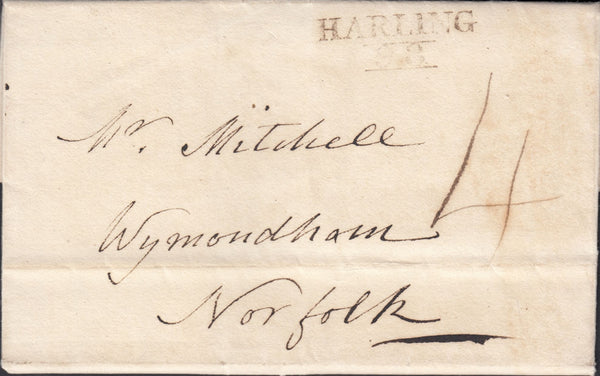 HARLING
Mr. Mitchell
4
Wymondham
Norfolk